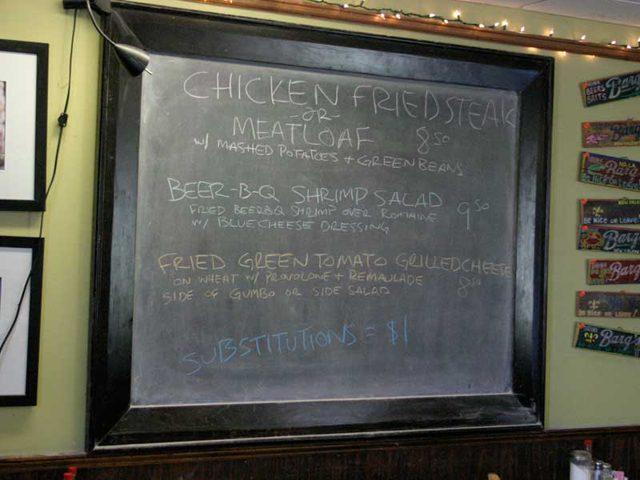 CHICKEN FRIED STEAK
-OR-
MEATLOAF 8 50
w/ MASHED POTATOES + GREEN BEANS
BEER-B-Q SHRIMP SALAD 9 50
FRIED BEERBQ SHRIMP OVER ROMAINE
w/ BLUECHEESE DRESSING
FRIED GREEN TOMATO GRILLED CHEESE
ON WHEAT w/ PROVOLONE + REMAULADE
SIDE OF GUMBO OR SIDE SALAD
SUBSTITUTIONS = $1
Barq's
Barq's
Barq's
Be Nice or Leave!
Barq's
Barq's
Be Nice or Leave!
Barq's